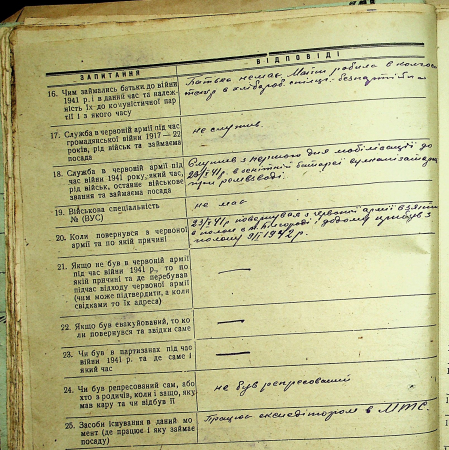 ЗАПИТАННЯ
ВІДПОВІДІ
16. Чим займались батьки до війни
1941 р. і в даний час та належ-
ність їх до комуністичної пар-
тії і з якого часу
Батька немає. Мати робила в колгос
безпартійна
17. Служба в червоній армії під час
громадянської війни 1917 — 22
років, рід військ та займаєма
посада
не служив.
18. Служба в червоній армії під
час війни 1941 року, який час,
рід військ, останнє військове
звання та займаєма посада
Служив з первого дня мобілізації до
в зенітній батареї
при розвідці.
19. Військова спеціальність
№ (ВУС)
не має
20. Коли повернувся з червоної
армії та по якій причині
повернувся з червоної армії взятий
в полон в м. і додому прибув з
полону 1942 р.
21. Якщо не був в червоній армії
під час війни 1941 р., то по
якій причині та де перебував
підчас відходу червоної армії
(чим може підтвердити, а коли
свідками то їх адреса)
—
22. Якщо був евакуйований, то ко
ли повернувся та звідки саме
—
23. Чи був в партизанах під час
війни 1941 р. та де саме і
який час
—
24. Чи був репресований сам, або
хто з родичів, коли і защо, яку
мав кару та чи відбув її
не був репресований
25. Засоби існування в даний мо
мент (де працює і яку займає
посаду)
Працює експедітором в МТС.